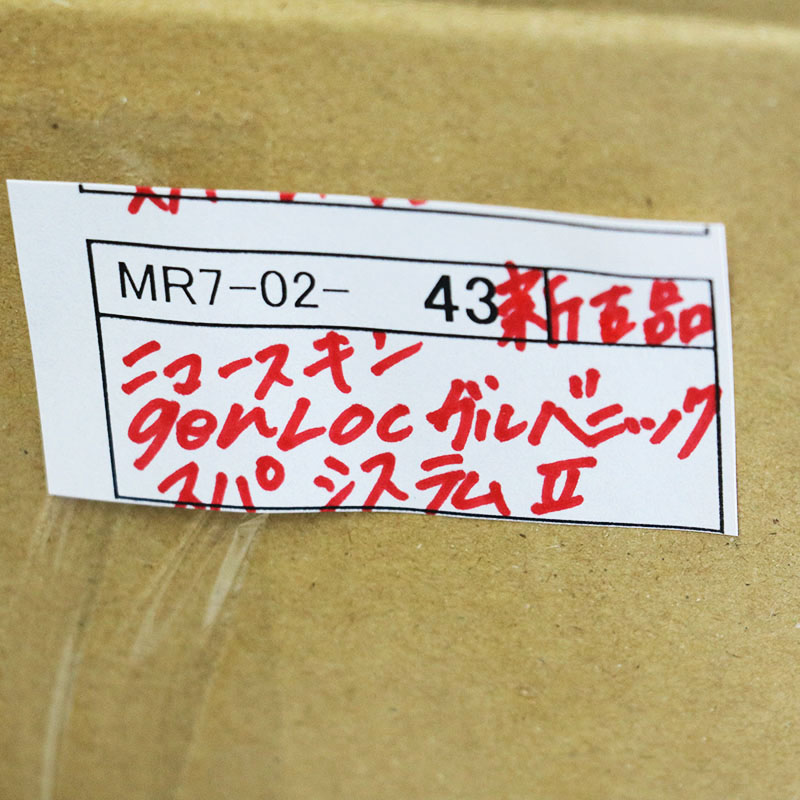 MR7-02- 43 新古品
ニュースキン
genLoc ガルベニック
スパ システム II